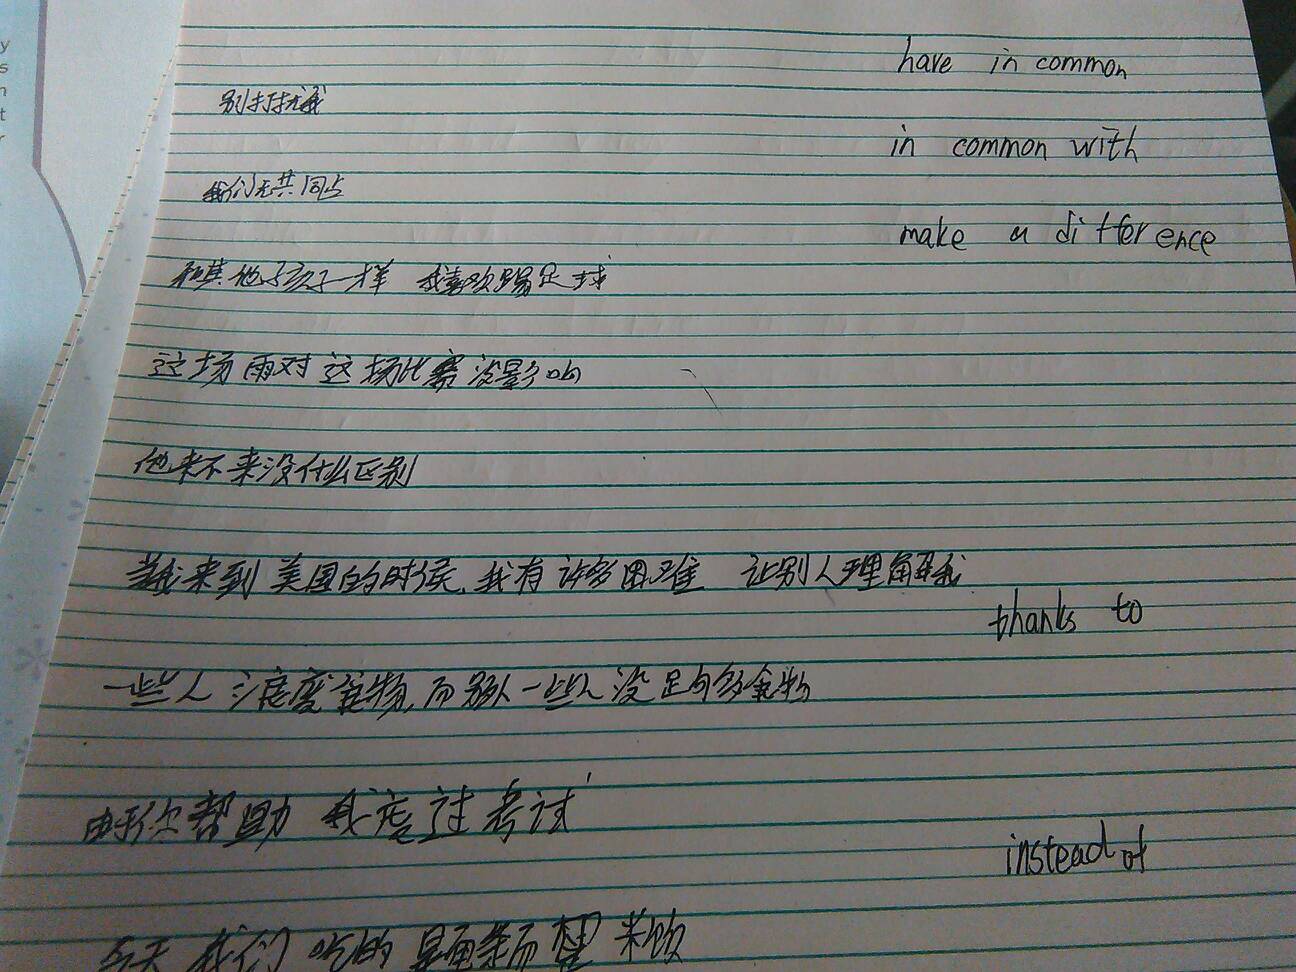 y
s
n
t
r
have in common
别打扰我
in common with
我们无共同点
make a difference
和其他孩子一样 我喜欢踢足球
这场雨对这场比赛没影响
他来不来没什么区别
当我来到美国的时候,我有许多困难 让别人理解我
thanks to
一些人 食物,而另一些人没足够多食物
由于你帮助 我度过考试
instead of
今天 我们吃的是面条而 米饭